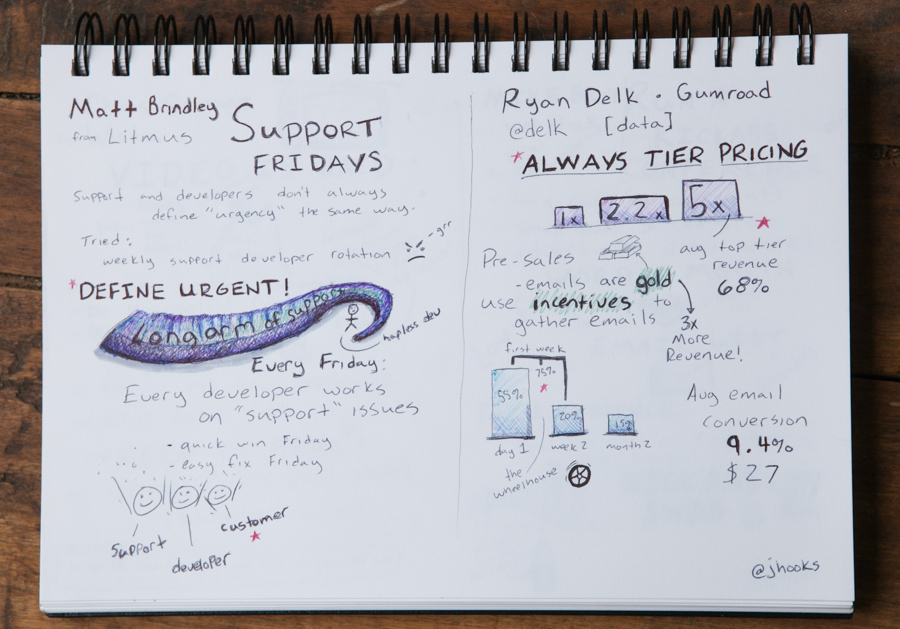 Matt Brindley
from Litmus
SUPPORT
FRIDAYS
Support and developers don't always
define "urgency" the same way.
Tried:
weekly support developer rotation
-grr
*DEFINE URGENT!
Long arm of support
hapless dev
Every Friday:
Every developer works
on "support" issues
- quick win Friday
- easy fix Friday
support
developer
customer
Ryan Delk • Gumroad
@delk [data]
*ALWAYS TIER PRICING
1x
2.2x
5x
avg top tier
revenue
68%
Pre-sales
-emails are gold
use incentives to
gather emails
3x
More
Revenue!
first week
55%
75%
20%
15%
day 1
week 2
month 2
the
wheelhouse
Avg email
conversion
9.4%
$27
@jhooks